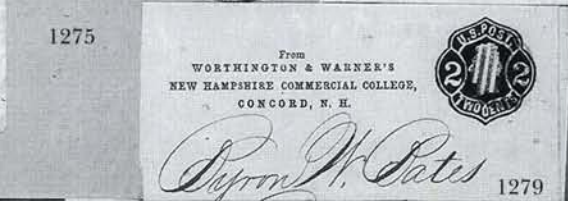 1275
From
WORTHINGTON & WARNER'S
NEW HAMPSHIRE COMMERCIAL COLLEGE,
CONCORD, N. H.
U.S. POST.
2 2
TWO CENTS
Byron W. Bates
1279